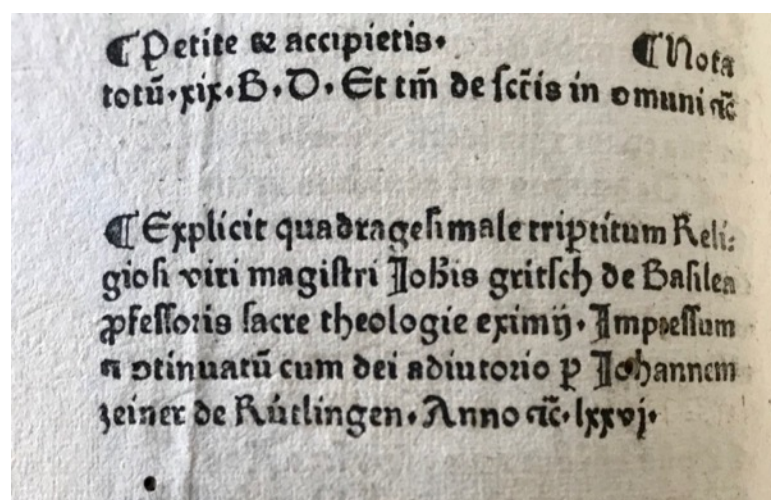 ¶Petite ⁊ accipietis. ¶Nota
totū.xix.B.D. Et tm̄ de sct̄is in omuni ⁊c̄
¶Explicit quadragesimale triptitum Reli⸗
giosi viri magistri Joh̄is gritsch de Basilea
ꝓfessoris sacre theologie eximij. Impressum
⁊ ↄtinuatū cum dei adiutorio ꝑ Johannem
zeiner de Rútlingen. Anno ⁊c̄. lxxvj.